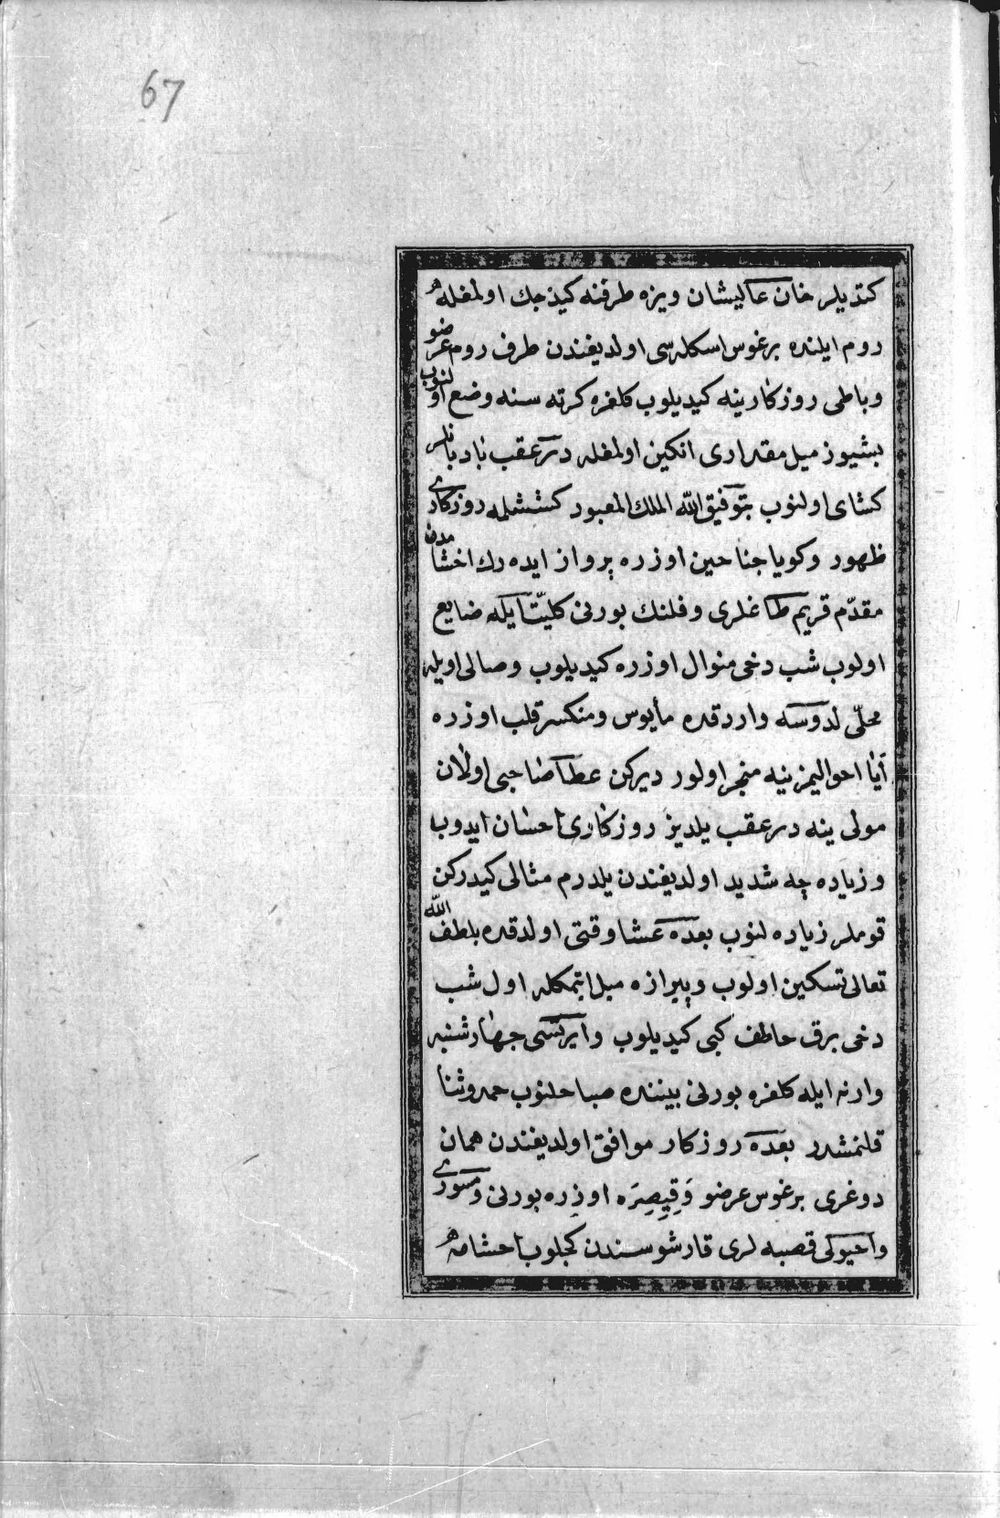 67
كتديلر خان عاليشان ويزه طرفنه كيذجك اولمغله
روم ايلنده برغوس اسكله سى اولديغندن طرف روم عرضو
وباطى روزكارينه كيديلوب كلغره كرته سنه وضع اولنوب
بشيوز ميل مقدارى انكين اولمغله درعقب بادبانلر
كشاى اولنوب بتوفيق الله الملك المعبود كششلمه روزكارى
ظهور وكويا جناحين اوزره پرواز ايده رك اخشامدن
مقدّم قريم طاغلرى وفلنك بورنى كليّتا يله ضايع
اولوب شب دخى منوال اوزره كيديلوب وصالى اويله
محلّى لدوسه واردقده مأيوس ومنكسر قلب اوزره
آيا احواليمز ينه منجر اولور ديركن عطا صاحبى اولان
مولى ينه درعقب يلديز روزكارى احسان ايدوب
وزياده چه شديد اولديغندن يلدرم مثالى كيدركن
قوملر زياده لنوب بعده عشا وقتى اولدقده بلطف الله
تعالى تسكين اولوب وپيرازه ميل ايتمكله اول شب
دخى برق خاطف كبى كيديلوب وايرتسى جهارشنبه
وارنه ايله كلغره بورنى بيننده صباحلنوب حمد وثنا
قلنمشدر بعده روزكار موافق اولديغندن همان
دوغرى برغوس عرضو وَقِيصِرَه اوزره بورنى ومسورى
واحيولى قصبه لرى قارشوسندن كجلوب اخشامه